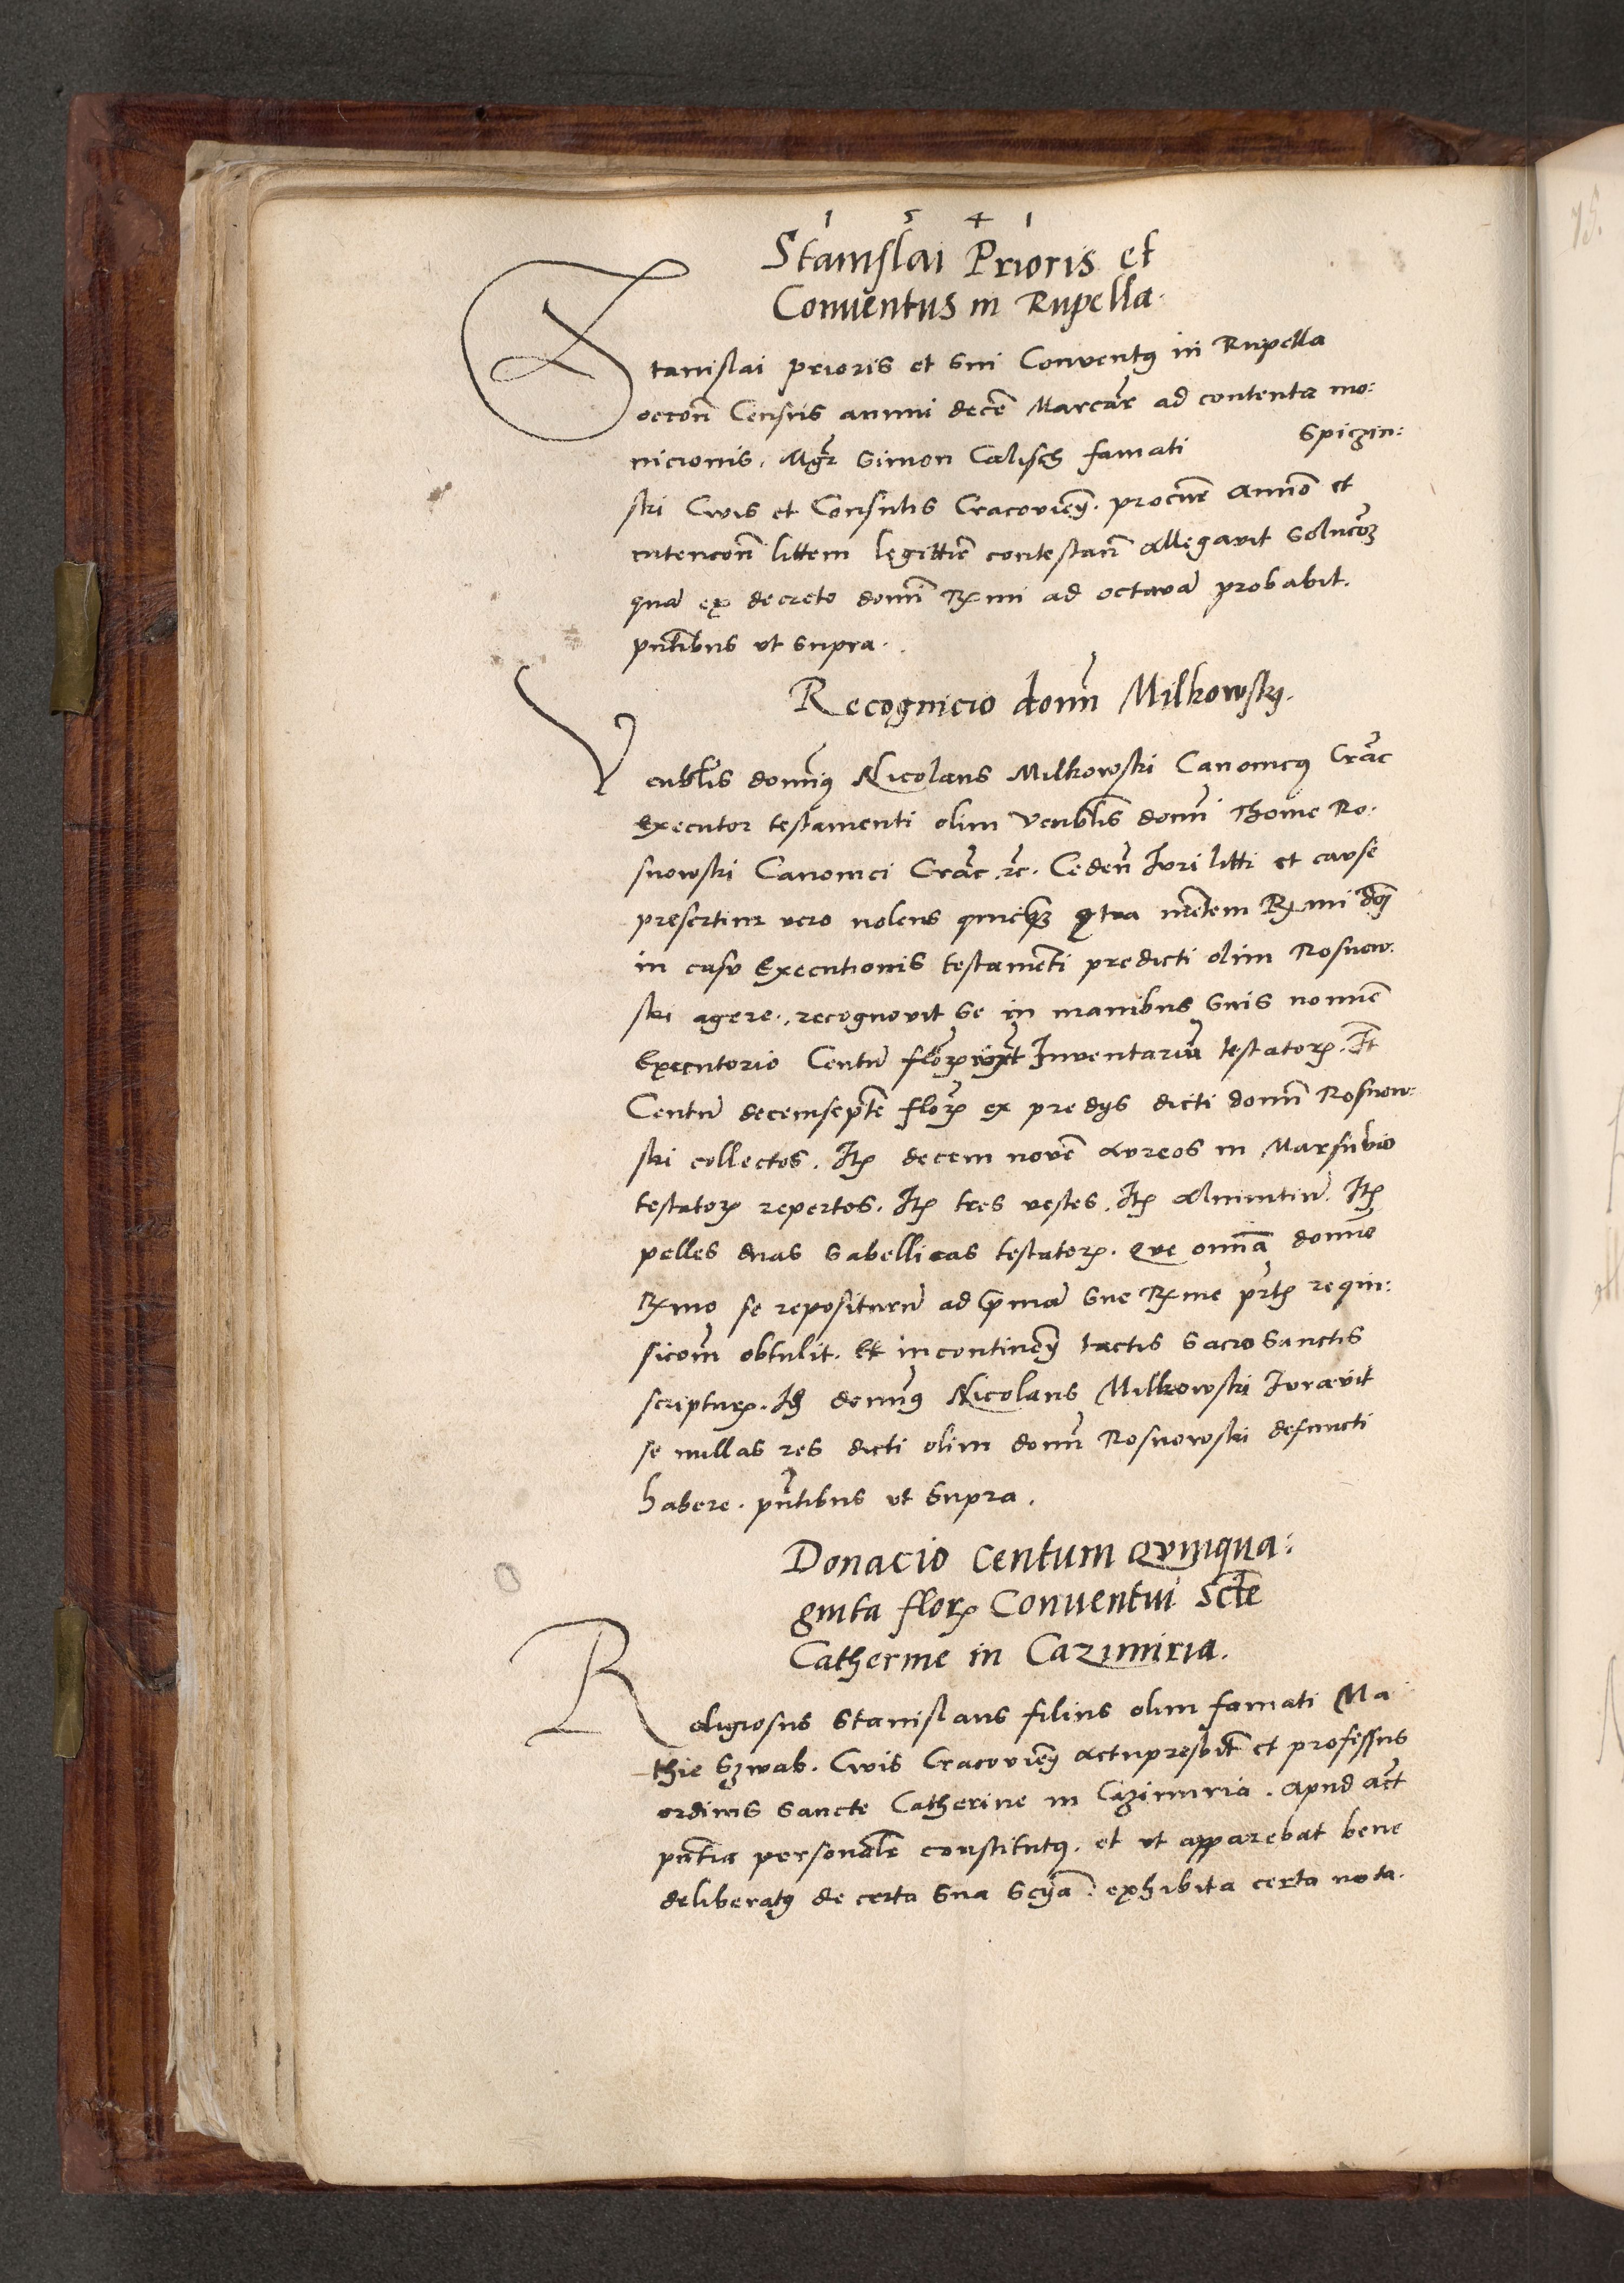 1 5 4 1
Stanislai Prioris et
Conventus in Rupella.
Stanislai prioris et sui Conventus in Rupella
occon Census annui decem Marcar ad contenta mo:
nicionis. Mgr Simon Calisch famati Spiczin:
ski Civis et Consulis Cracovien. procur annio et
intencon littem legittime contestan allegavit solucom
quam ex decreto domi Rmi ad octavam probabit.
pntibus ut supra.
Recognicio domi Milkowsky.
Venblis domnus Nicolaus Milkowski Canonicus Crac
Executor testamenti olim Venblis domi Thome Ro:
snowski Canonici Crac etc. Ceden Iuri litti et cause
presertim vero nolens quicquam contra mentem Rmi dni
in casu Executionis testamenti predicti olim Rosnow:
ski agere., recognovit se in manibus suis nomine
Executorio Centum flor iuxt Inventarium testatoris. Item
Centum decemseptem flor ex predys dicti domi Rosnow:
ski collectos. Item decem novem aureos in Marsubio
testatoris repertos. Item tres vestes. Item almutium. Item
pelles duas sabellicas testatoris. Que omnia domino
Rmo se repositurum ad primam sue Rme prtis requi:
sicom obtulit. Et incontinen tactis sacrosanctis
scripturis. Idem domnus Nicolaus Milkowski Iuravit
se nullas res dicti olim domi Rosnowski defuncti
habere. pntibus ut supra.
Donacio Centum Quinqua:
ginta flor Conventui Scte
Catherine in Cazimiria.
Religiosus Stanislaus filius olim famati Ma
thie Szwab. Civis Cracovien actupresbiter et professus
ordinis Sancte Catherine in Cazimiria. apud act
pntia personaliter constitutus. et ut apparebat bene
deliberatus de certa sua scientia: exhibita certa nota.